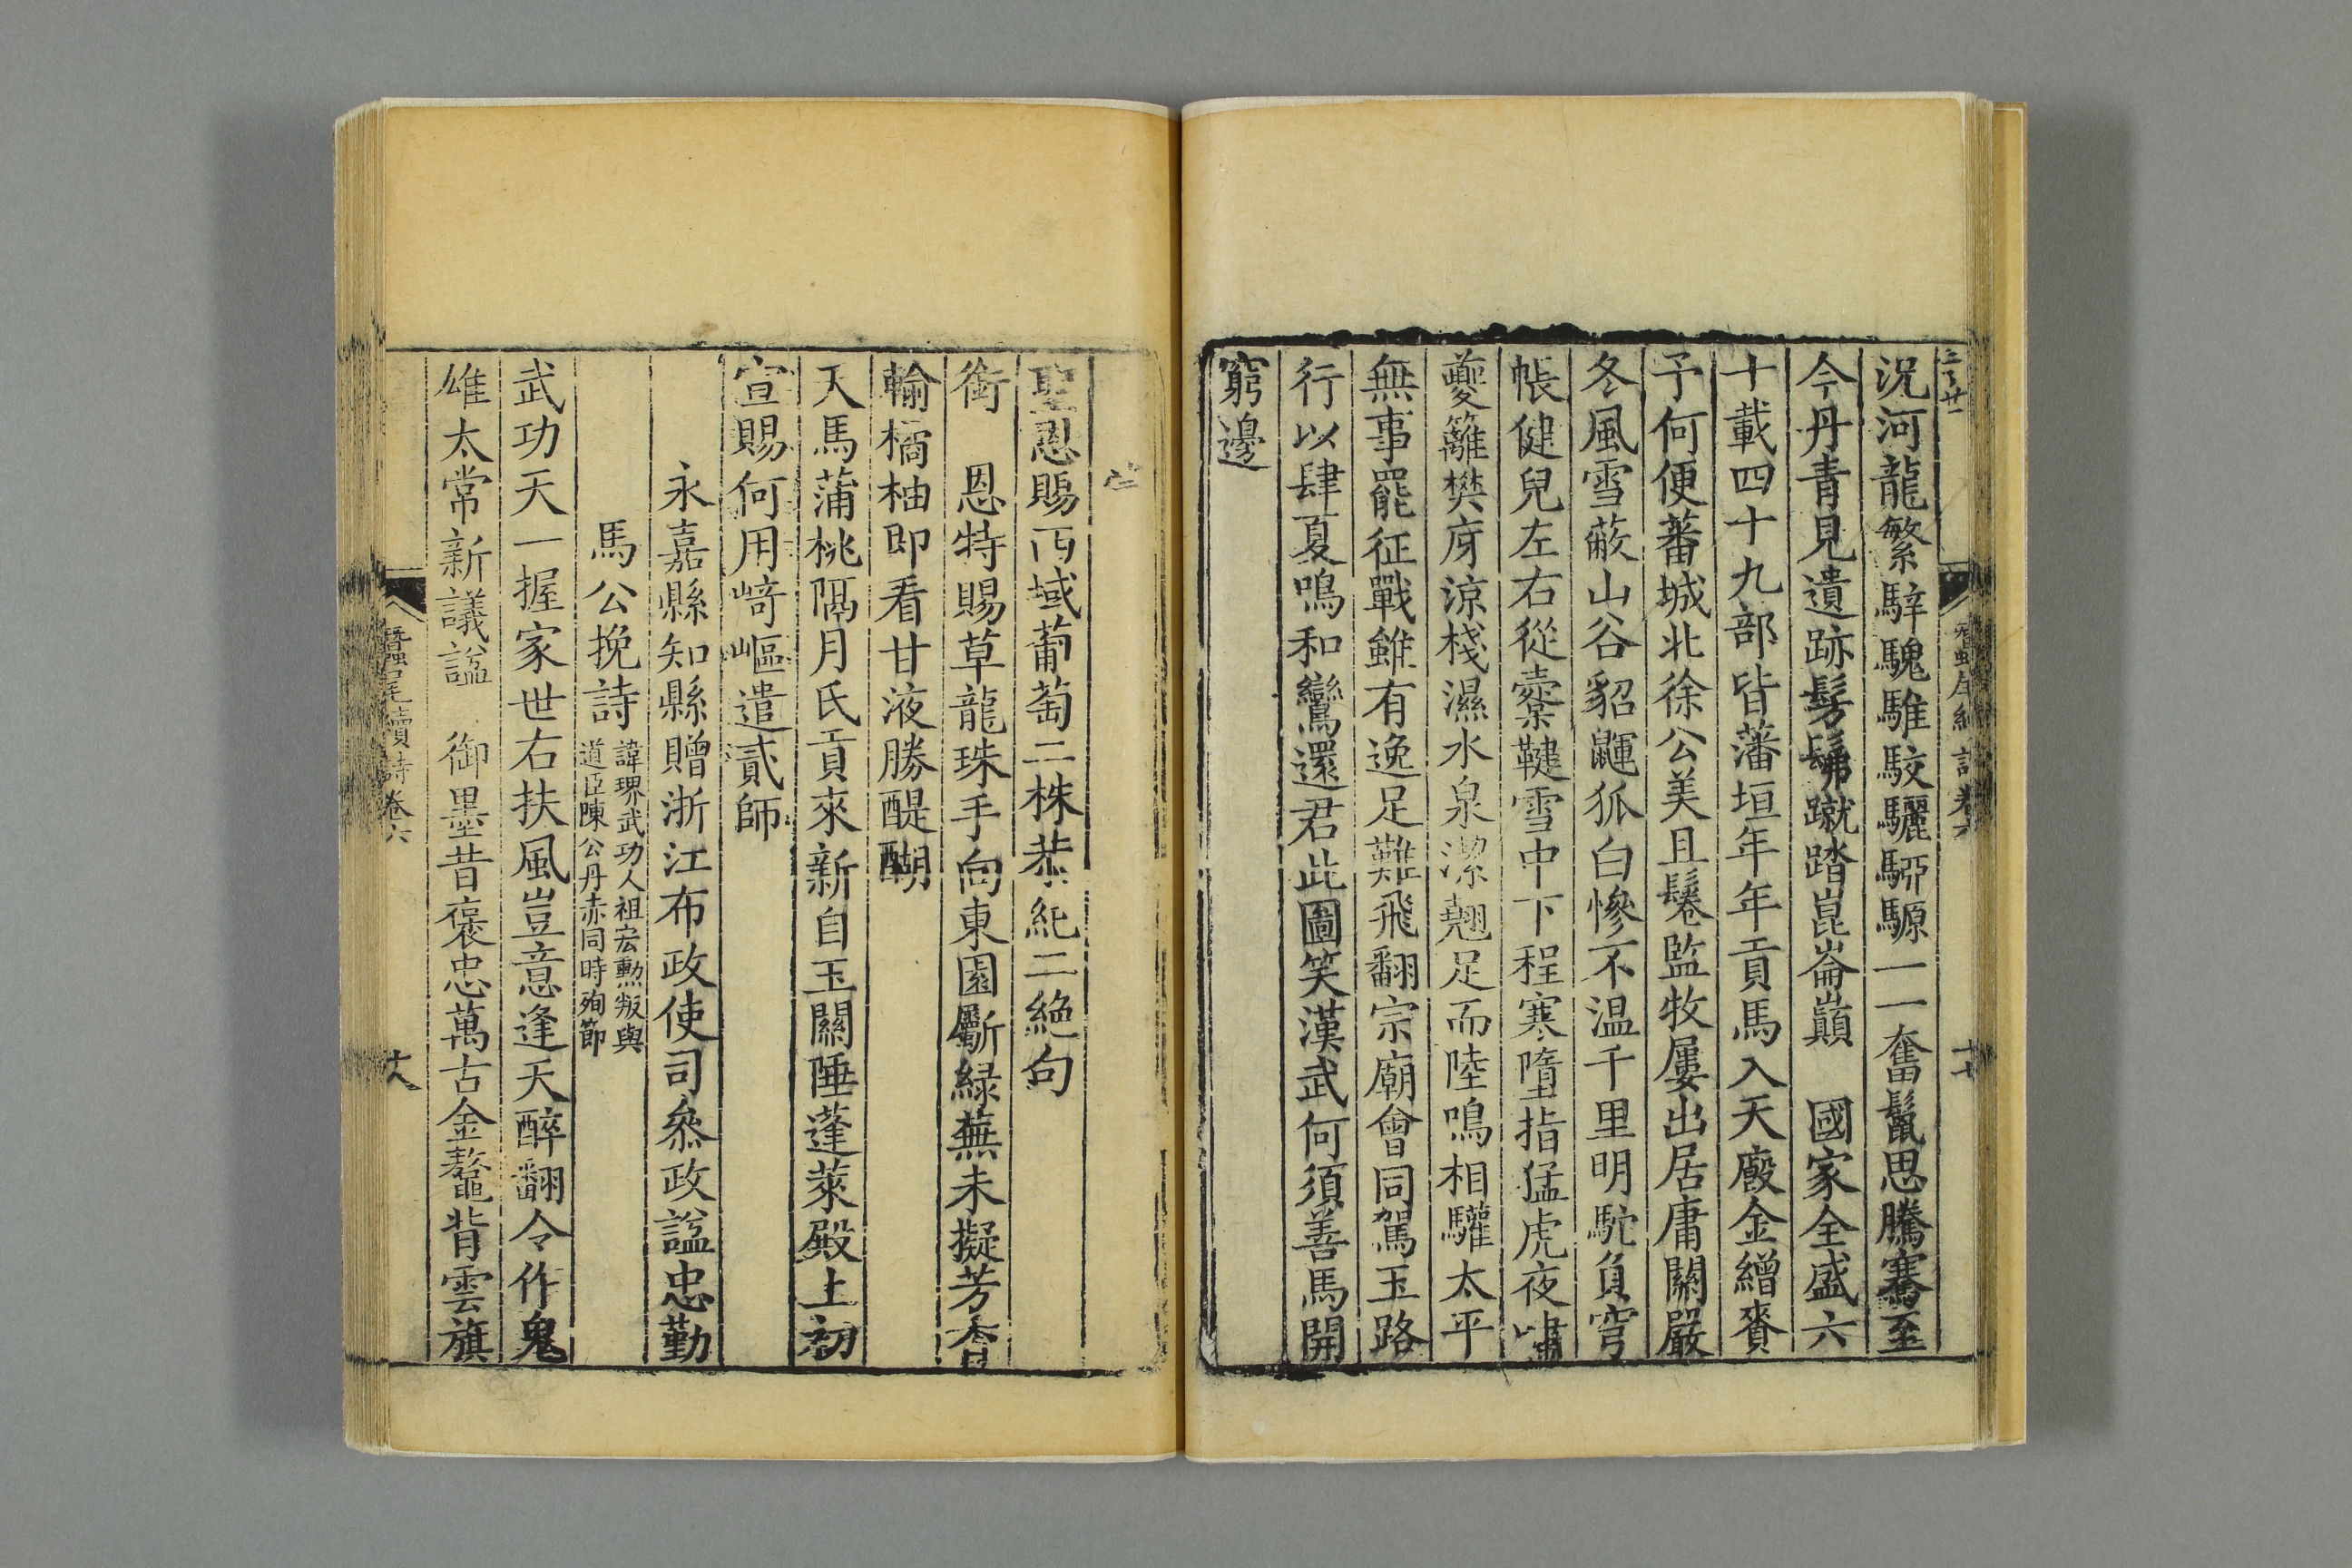 況河龍繁騂騩騅駮驪騢騵一一奮鬣思騰騫至
今丹青見遺跡髣髴蹴踏崑崙巔　國家全盛六
十載四十九部皆藩垣年年貢馬入天廄金繒賚
予何便蕃城北徐公美且鬈監牧屢出居庸關嚴
冬風雪蔽山谷貂鼲狐白慘不温千里明駝負穹
帳健兒左右從櫜鞬雪中下程寒墮指猛虎夜嘯
藩籬樊庌涼棧濕水泉潔翹足而陸鳴相驩太平
無事罷征戰雖有逸足難飛翻宗廟會同駕玉路
行以肆夏鳴和鸞還君此圖笑漢武何須善馬開
窮邊
聖恩賜西域葡萄二株恭紀二絶句
銜　恩特賜草龍珠手向東園斸緑蕪未擬芳香
輸橘柚即看甘液勝醍醐
天馬蒲桃隔月氏貢來新自玉關陲蓬萊殿上初
宣賜何用崎嶇遣貳師
永嘉縣知縣贈浙江布政使司叅政諡忠勤
馬公挽詩 諱琾武功人祖宏勳叛與
道臣陳公丹赤同時殉節
武功天一握家世右扶風豈意逢天醉翻令作鬼
雄太常新議諡　御墨昔褒忠萬古金鼇背雲旗
蠶尾續詩卷六
十八